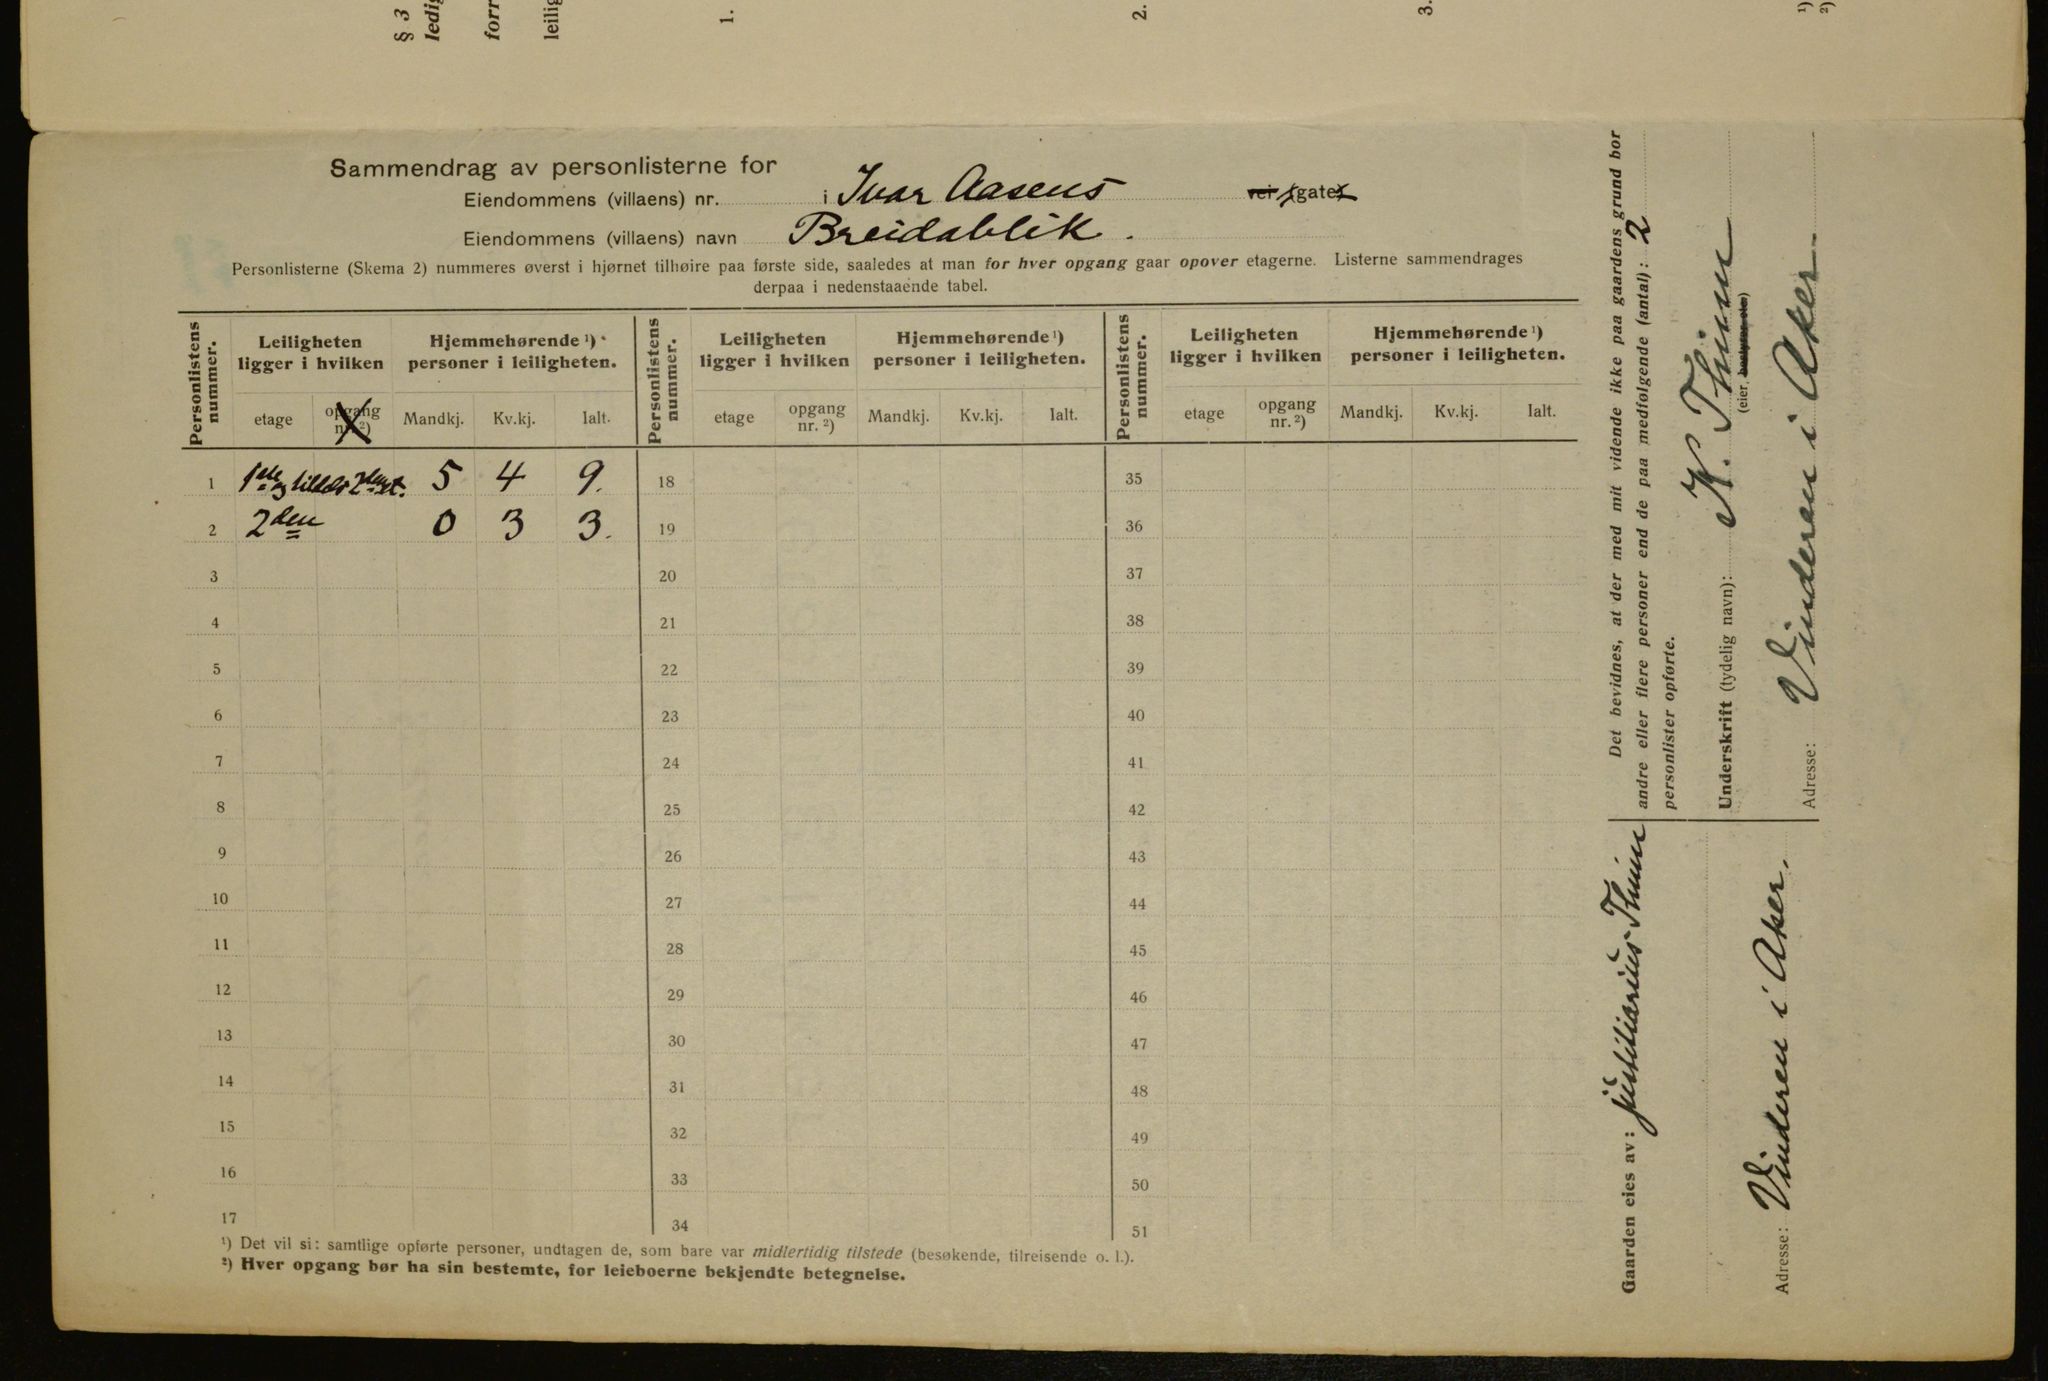 § 3
ledig
forr
leilig
1.
2.
3.
¹)
²)
Sammendrag av personlisterne for
Eiendommens (villaens) nr. i Ivar Aasens vei (gate)
Eiendommens (villaens) navn Breidablik.
Personlisterne (Skema 2) nummeres øverst i hjørnet tilhøire paa første side, saaledes at man for hver opgang gaar opover etagerne. Listerne sammendrages
derpaa i nedenstaaende tabel.
Personlistens nummer. Leiligheten ligger i hvilken Hjemmehørende ¹) personer i leiligheten. Personlistens nummer. Leiligheten ligger i hvilken Hjemmehørende ¹) personer i leiligheten. Personlistens nummer. Leiligheten ligger i hvilken Hjemmehørende ¹) personer i leiligheten.
etage opgang nr. ²) Mandkj. Kv.kj. Ialt. etage opgang nr. ²) Mandkj. Kv.kj. Ialt. etage opgang nr. ²) Mandkj. Kv.kj. Ialt.
1 1ste og 2den et. 5 4 9. 18 35
2 2den 0 3 3. 19 36
3 20 37
4 21 38
5 22 39
6 23 40
7 24 41
8 25 42
9 26 43
10 27 44
11 28 45
12 29 46
13 30 47
14 31 48
15 32 49
16 33 50
17 34 51
¹) Det vil si: samtlige opførte personer, undtagen de, som bare var midlertidig tilstede (besøkende, tilreisende o. l.).
²) Hver opgang bør ha sin bestemte, for leieboerne bekjendte betegnelse.
Det bevidnes, at der med mit vidende ikke paa gaardens grund bor
andre eller flere personer end de paa medfølgende (antal): 2
personlister opførte.
Underskrift (tydelig navn): K. Thinn
(eier, bestyrer etc)
Adresse: Vinderen i Aker.
Gaarden eies av: justitiarius Thinn
Adresse: Vinderen i Aker.